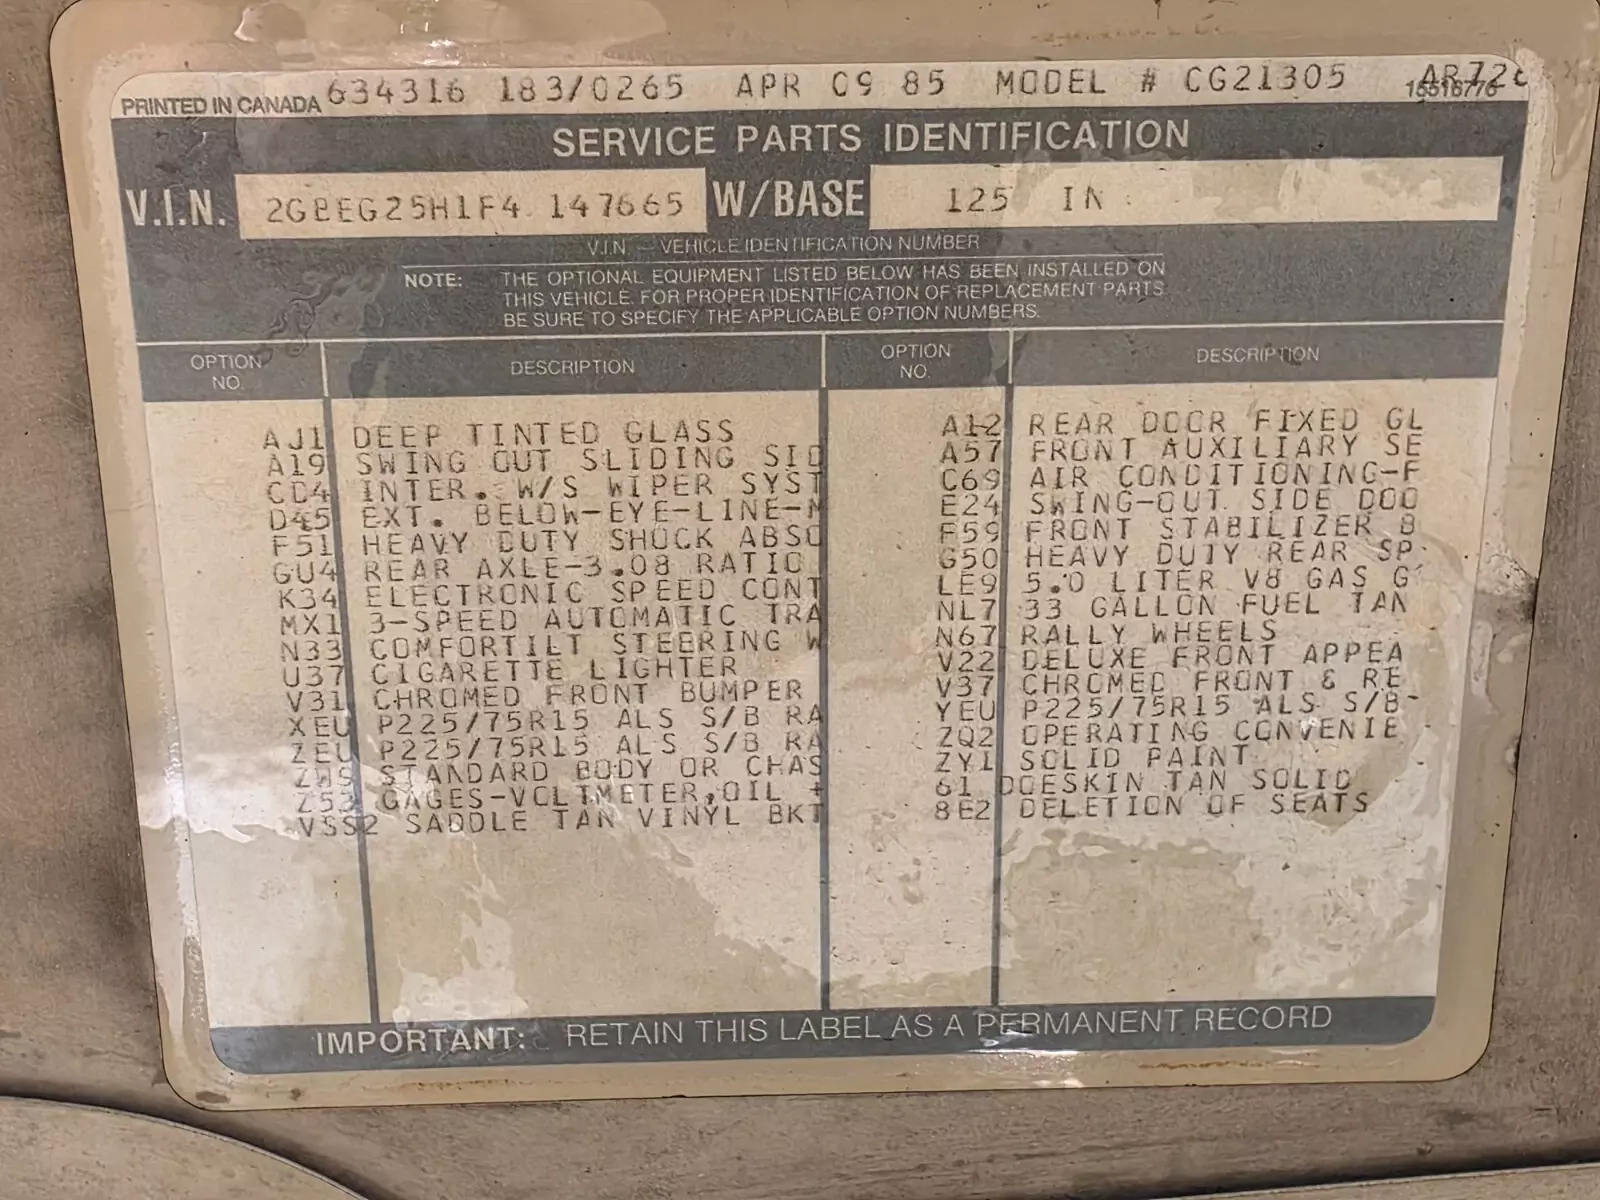 PRINTED IN CANADA 634316 183/0265 APR 09 85 MODEL # CG21305
SERVICE PARTS IDENTIFICATION
V.I.N. 2GBEG25H1F4 147665 W/BASE 125 IN
V.I.N. — VEHICLE IDENTIFICATION NUMBER
NOTE: THE OPTIONAL EQUIPMENT LISTED BELOW HAS BEEN INSTALLED ON
THIS VEHICLE. FOR PROPER IDENTIFICATION OF REPLACEMENT PARTS
BE SURE TO SPECIFY THE APPLICABLE OPTION NUMBERS.
OPTION NO. DESCRIPTION
AJ1 DEEP TINTED GLASS
A19 SWING OUT SLIDING SID
CD4 INTER. W/S WIPER SYST
D45 EXT. BELOW-EYE-LINE-M
F51 HEAVY DUTY SHOCK ABSO
GU4 REAR AXLE-3.08 RATIO
K34 ELECTRONIC SPEED CONT
MX1 3-SPEED AUTOMATIC TRA
N33 COMFORTILT STEERING W
U37 CIGARETTE LIGHTER
V31 CHROMED FRONT BUMPER
XEU P225/75R15 ALS S/B RA
ZEU P225/75R15 ALS S/B RA
ZW9 STANDARD BODY OR CHAS
Z53 GAGES-VOLTMETER,OIL +
VSS2 SADDLE TAN VINYL BKT
OPTION NO. DESCRIPTION
A12 REAR DOOR FIXED GL
A57 FRONT AUXILIARY SE
C69 AIR CONDITIONING-F
E24 SWING-OUT SIDE DOO
F59 FRONT STABILIZER B
G50 HEAVY DUTY REAR SP
LE9 5.0 LITER V8 GAS
NL7 33 GALLON FUEL TAN
N67 RALLY WHEELS
V22 DELUXE FRONT APPEA
V37 CHROMED FRONT & RE
YEU P225/75R15 ALS S/B
ZQ2 OPERATING CONVENIE
ZY1 SOLID PAINT
61 DOESKIN TAN SOLID
8E2 DELETION OF SEATS
IMPORTANT: RETAIN THIS LABEL AS A PERMANENT RECORD